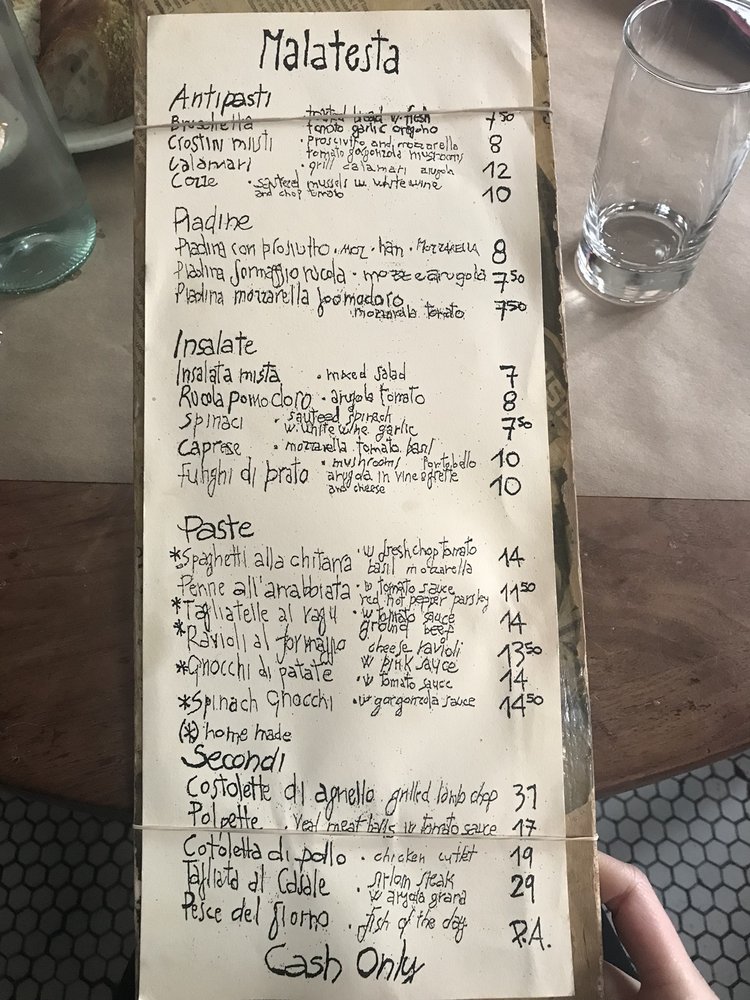 Malatesta
Antipasti
Bruschetta toasted bread w. fresh 7.50
tomato garlic oregano
Crostini misti · prosciutto and mozzarella 8
tomato gorgonzola mushrooms
Calamari · grill calamari arugola 12
Cozze · sauteed mussels w. white wine 10
and chop tomato
Piadine
Piadina con prosiutto · moz · han · mozzarella 8
Piadina formaggio rucola · mozz e arugola 7.50
Piadina mozzarella pomodoro 7.50
· mozzarella tomato
Insalate
Insalata mista · mixed salad 7
Rucola pomodoro · arugola tomato 8
Spinaci · sauteed spinach 7.50
w. white wine garlic
Caprese · mozzarella tomato basil 10
Funghi di prato · mushrooms Portobello 10
arugola in vinegrette
and cheese
Paste
*Spaghetti alla chitarra · w fresh chop tomato 14
basil mozzarella
Penne all'arrabbiata · w tomato sauce 11.50
red hot pepper parsley
*Tagliatelle al ragu · w tomato sauce 14
ground beef
*Ravioli al formaggio cheese ravioli 13.50
w pink sauce
*Gnocchi di patate · w tomato sauce 14
*Spinach Gnocchi · w gorgonzola sauce 14.50
(*) home made
Secondi
Costolette di agnello · grilled lamb chop 31
Polpette · veal meat balls w tomato sauce 17
Cotoletta di pollo · chicken cutlet 19
Tagliata al Casale · sirloin steak 29
w arugola grana
Pesce del giorno · fish of the day P.A.
Cash Only